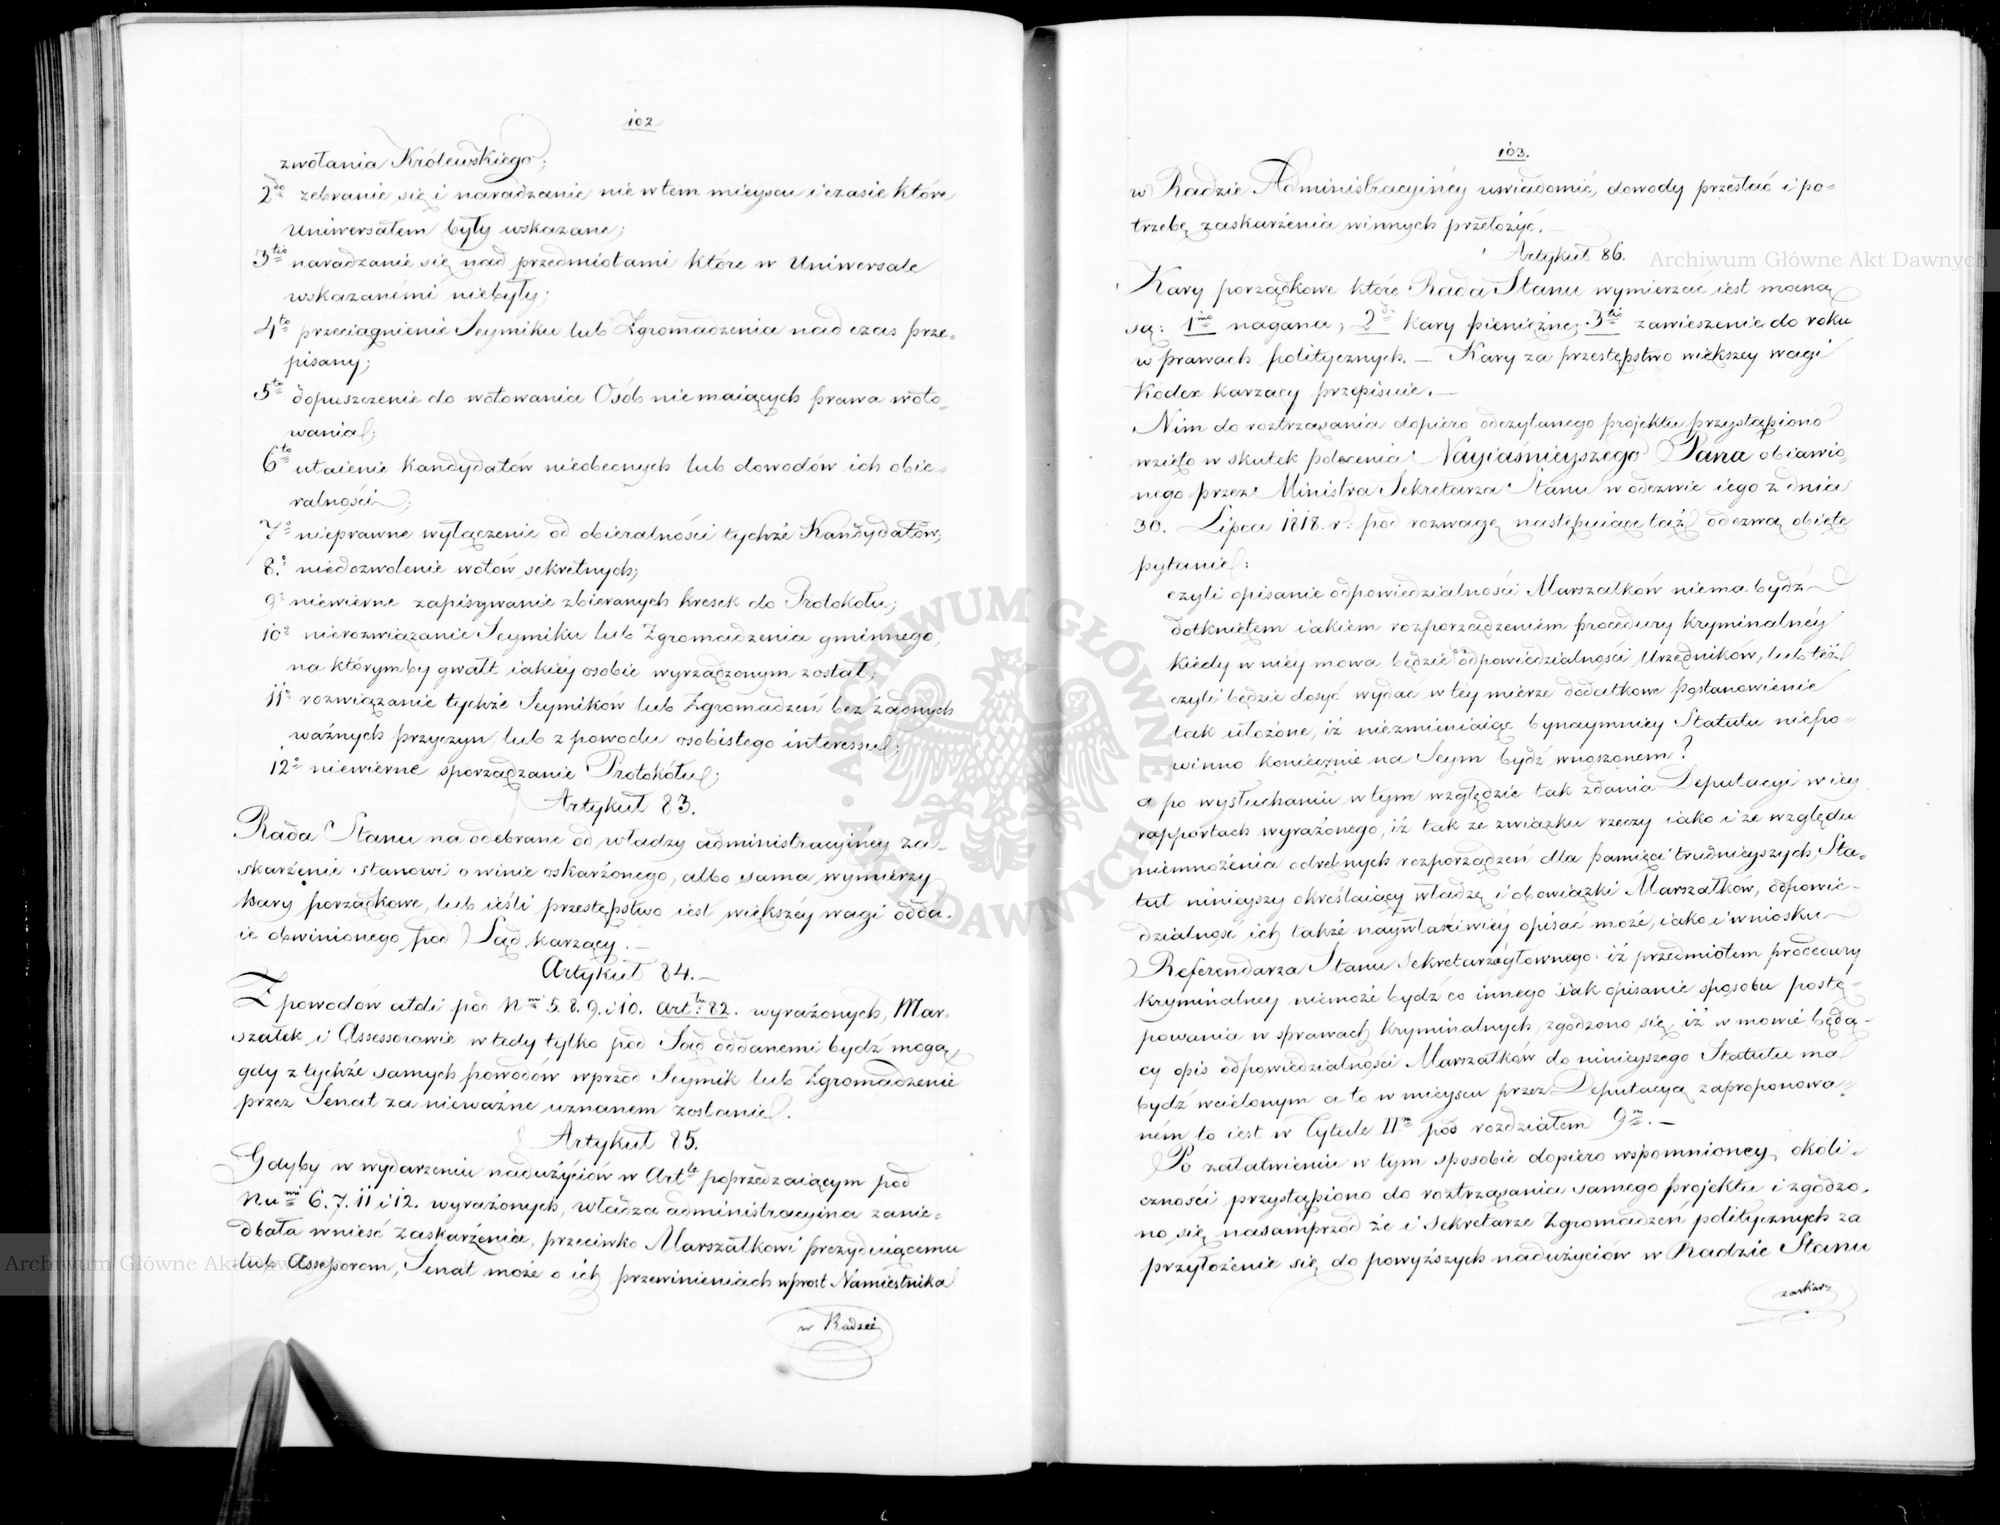 102
zwołania Królewskiego;
2do zebranie się i naradzanie nie w tem mieyscu i czasie które
Uniwersałem były wskazane;
3tio naradzanie się nad przedmiotami które w Uniwersale
wskazanémi niebyły;
4to przeciągnienie Seymiku lub Zgromadzenia nad czas prze-
pisany;
5to dopuszczenie do wotowania Osób niemaiących prawa woto-
wania;
6to utaienie kandydatów nieobecnych lub dowodów ich obie-
ralności;
7o nieprawne wyłączenie od obieralności tychże Kandydatów;
8o niedozwolenie wotów sekretnych;
9o niewierne zapisywanie zbieranych kresek do Protokołu;
10o nierozwiązanie Seymiku lub Zgromadzenia gminnego,
na którymby gwałt iakiéy osobie wyrządzonym został;
11o rozwiązanie tychże Seymików lub Zgromadzeń bez żadnych
ważnych przyczyn, lub z powodu osobistego interessu;
12o niewierne sporządzanie Protokółu;
Artykuł 83.
Rada Stanu na odebrane od władzy administracyinéy za-
skarżenie stanowi o winie oskarżonego, albo sama wymierzy
kary porządkowe, lub ieśli przestępstwo iest większéy wagi odda-
ie obwinionego pod Sąd karzący. —
Artykuł 84. —
Z powodów atoli pod Nmi 5. 8. 9. i 10. Artłu 82. wyrażonych, Mar-
szałek i Assessorowie wtedy tylko pod Sąd oddanemi bydź mogą,
gdy z tychże samych powodów wprzód Seymik lub Zgromadzenie
przez Senat za nieważne uznanem zostanie.
Artykuł 85.
Gdyby w wydarzeniu nadużyciów w Artle poprzedzaiącym pod
Numi 6. 7. 11 i 12. wyrażonych, władza administracyina zanie-
dbała wnieść zaskarżenie, przeciwko Marszałkowi prezyduiącemu
lub Assessorom, Senat może o ich przewinieniach wprost Namiestnika
w Radzie
103.
w Radzie Administracyinéy uwiadomić, dowody przesłać i po-
trzebę zaskarżenia winnych przełożyć. —
Artykuł 86.
Kary porządkowe które Rada Stanu wymierzać iest mocną
są: 1mo nagana; 2do kary pieniężne; 3tio zawieszenie do roku
w prawach politycznych. — Kary za przestępstwo większey wagi
Kodex karzący przepisuie. —
Nim do roztrząsania dopiero odczytanego projektu przystąpiono
wzięto w skutek polecenia Nayiaśnieyszego Pana obiawio-
nego przez Ministra Sekretarza Stanu w odezwie iego z dnia
30. Lipca 1818. r. pod rozwagę następuiące tąż odezwą obięte
pytanie:
czyli opisanie odpowiedzialności Marszałków niema bydź
dotkniętem iakiem rozporządzeniem procedury kryminalnéy
kiedy w niéy mowa będzie o odpowiedzialności Urzędników, lub też
czyli będzie dosyć wydać w téy mierze dodatkowe postanowienie
tak ułożone, iż niezmieniaiąc bynaymniey Statutu niepo-
winno koniecznie na Seym bydź wnoszonem?
a po wysłuchaniu w tym względzie tak zdania Deputacyi w iey
rapportach wyrażonego, iż tak ze związku rzeczy iako i ze względu
niemnożenia odrębnych rozporządzeń dla pamięci trudnieyszych, Sta-
tut ninieyszy określaiący władzę i obowiązki Marszałków, odpowie-
dzialność ich także naywłaściwiéy opisać może, iako i wniosku
Referendarza Stanu Sekretarza głownego: iż przedmiotem procedury
kryminalney niemoże bydź co innego iak opisanie sposobu postę-
powania w sprawach kryminalnych, zgodzono się, iż w mowie będą-
cy opis odpowiedzialności Marszałków do ninieyszego Statutu ma
bydź wcielonym a to w mieyscu przez Deputacyą zaproponowa-
ném to iest w Tytule IIm pod rozdziałem 9m. —
Po załatwieniu w tym sposobie dopiero wspomnioney okoli-
czności przystąpiono do roztrząsania samego projektu i zgodzo-
no się nasamprzód że i Sekretarze Zgromadzeń politycznych za
przyłożenie się do powyższych nadużyciów w Radzie Stanu
zaskarż
Archiwum Główne Akt Dawnych
Archiwum Główne Akt Dawnych
ARCHIWUM GŁÓWNE AKT DAWNYCH